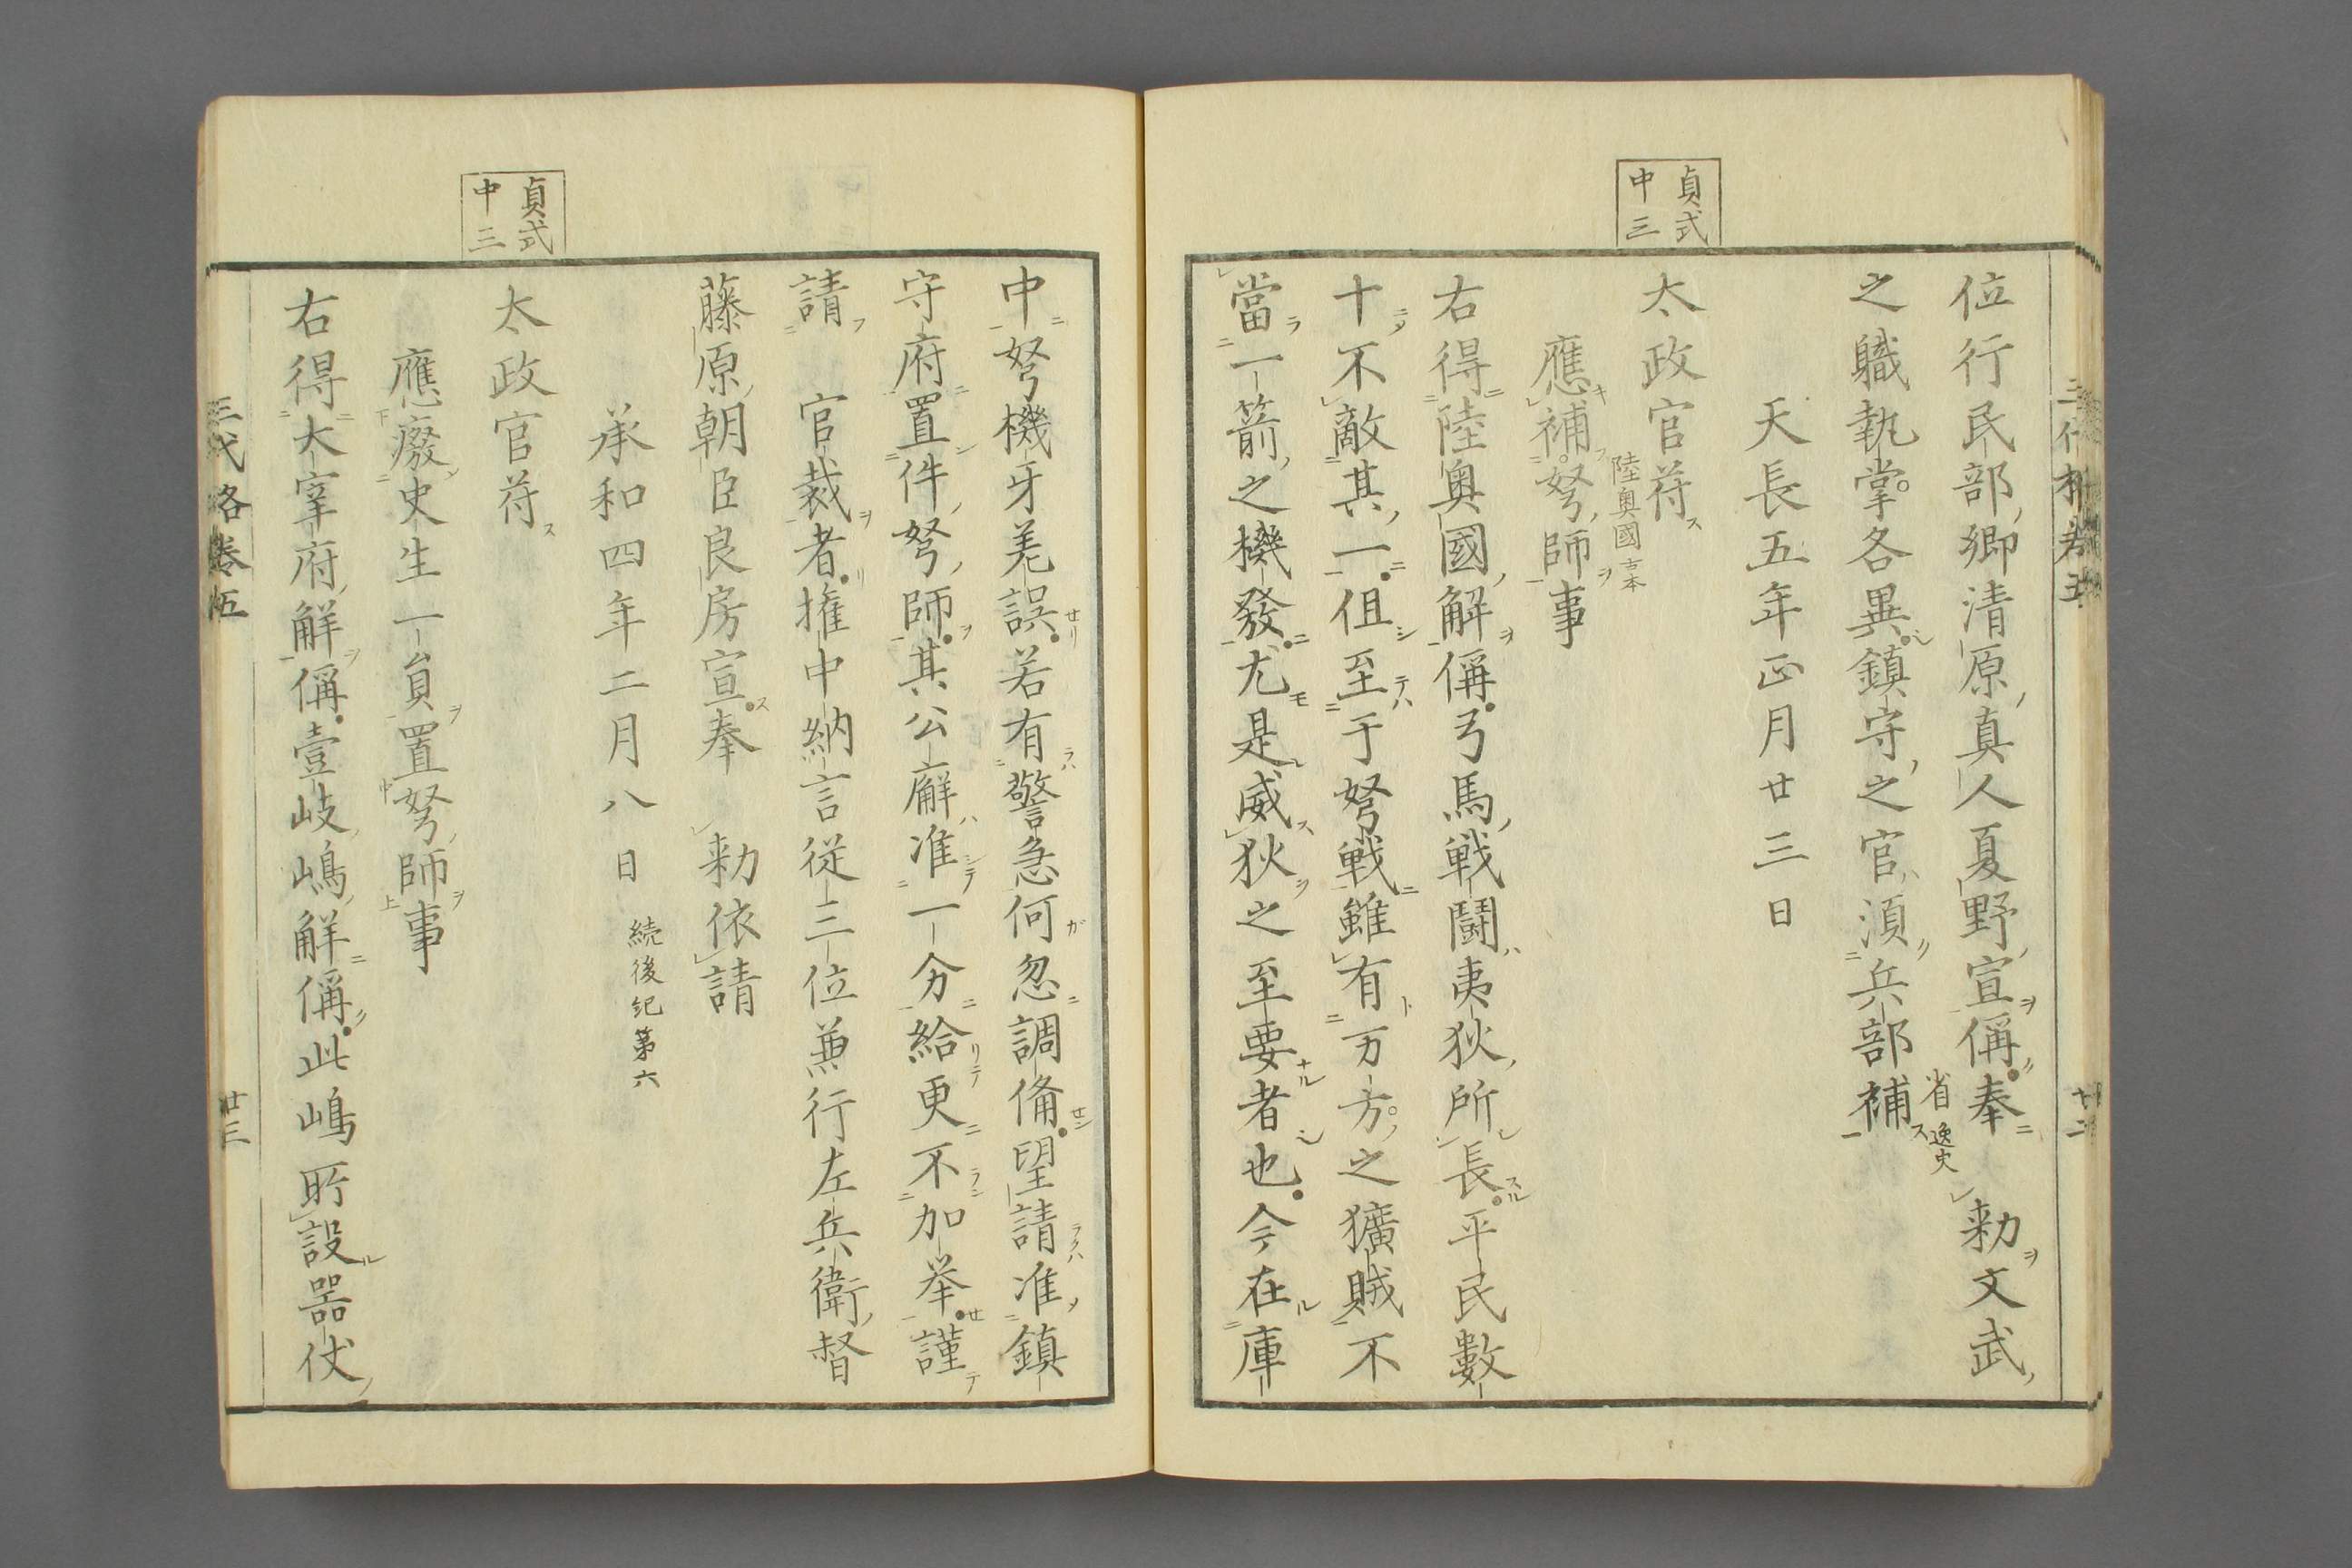 三代格卷五
十二
位行民部卿清原真人夏野宣偁奉 勅文武
之職執掌各異鎮守之官湏兵部補
省逸史
天長五年正月廿三日
貞式
中三
太政官苻
應補弩師事
陸奥國古本
右得陸奥國解偁弓馬戦闘夷狄所長平民數
十不敵其一但至于弩戦雖有万方之獷賊不
當一箭之機發尤是威狄之至要者也今在庫
中弩機牙差誤若有警急何忽調俻望請准鎮
守府置件弩師其公廨准一分給更不加挙謹
請 官裁者権中納言従三位兼行左兵衛督
藤原朝臣良房宣奉 勅依請
承和四年二月八日
続後紀第六
貞式
中三
太政官苻
應廢史生一貟置弩師事
右得大宰府解偁壹岐嶋解偁此嶋所設器仗
三代格卷五
廿三